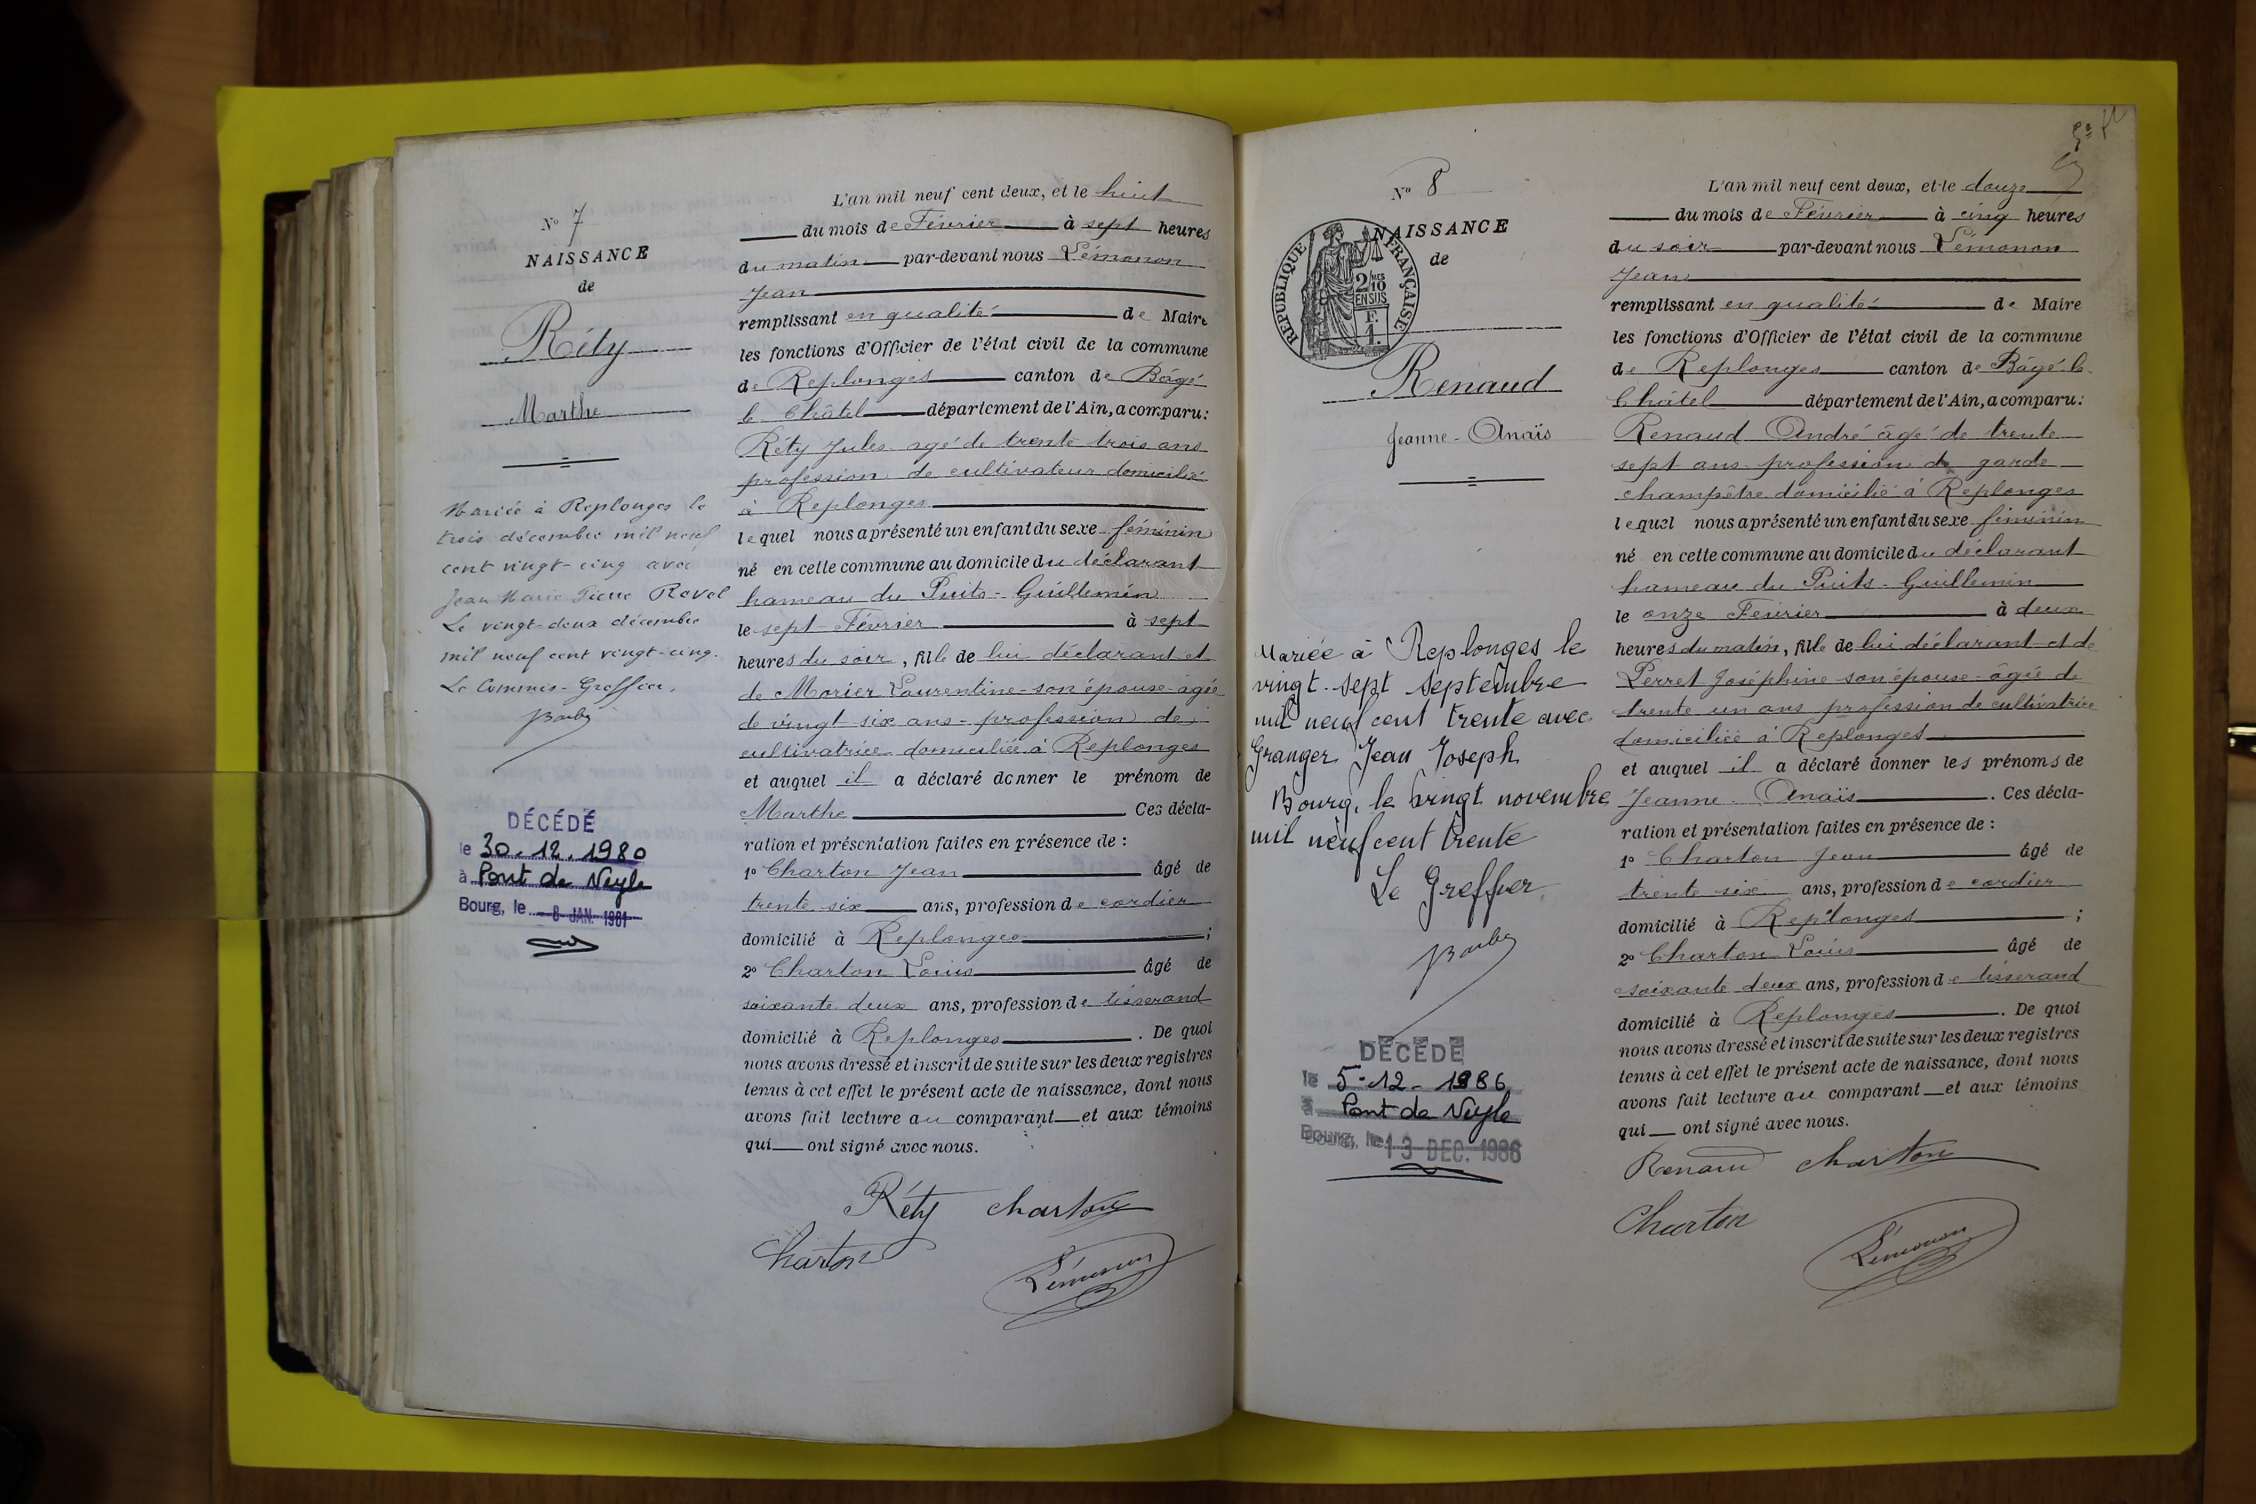 N° 7
NAISSANCE
de
Réty
Marthe
Mariée à Replonges le
trois décembre mil neuf
cent vingt-cinq avec
Jean Marie Pierre Revel
Le vingt-deux décembre
mil neuf cent vingt-cinq.
Le Commis-Greffier,
DÉCÉDÉ
le 30.12.1980
à Pont de Veyle
Bourg, le 8 JAN. 1981
L'an mil neuf cent deux, et le huit
du mois de Février à sept heures
du matin par-devant nous Lémonon
Jean
remplissant en qualité de Maire
les fonctions d'Officier de l'état civil de la commune
de Replonges canton de Bâgé
le Châtel département de l'Ain, a comparu:
Réty Jules agé de trente trois ans
profession de cultivateur domicilié
à Replonges
lequel nous a présenté un enfant du sexe féminin
né en cette commune au domicile du déclarant
hameau du Puits-Guillemin
le sept Février à sept
heures du soir, fille de lui déclarant et
de Morier Laurentine son épouse âgée
de vingt six ans - profession de
cultivatrice domiciliée à Replonges
et auquel il a déclaré donner le prénom de
Marthe Ces décla-
ration et présentation faites en présence de :
1° Charton Jean âgé de
trente six ans, profession de cordier
domicilié à Replonges ;
2° Charton Louis âgé de
soixante deux ans, profession de tisserand
domicilié à Replonges . De quoi
nous avons dressé et inscrit de suite sur les deux registres
tenus à cet effet le présent acte de naissance, dont nous
avons fait lecture au comparant et aux témoins
qui ont signé avec nous.
Réty Charton
Charton
Lémonon
N° 8
NAISSANCE
de
RÉPUBLIQUE FRANÇAISE
2/10 MES
EN SUS
F.
1.
Renaud
Jeanne-Anaïs
Mariée à Replonges le
vingt-sept septembre
mil neuf cent trente avec
Granger Jean Joseph
Bourg, le vingt novembre
mil neuf cent trente
Le Greffier
DÉCÉDÉ
le 5-12-1986
à Pont de Veyle
Bourg, le 13 DEC. 1986
L'an mil neuf cent deux, et le douze
du mois de Février à cinq heures
du soir par-devant nous Lémonon
Jean
remplissant en qualité de Maire
les fonctions d'Officier de l'état civil de la commune
de Replonges canton de Bâgé le
Châtel département de l'Ain, a comparu:
Renaud André âgé de trente
sept ans profession de garde
champêtre domicilié à Replonges
lequel nous a présenté un enfant du sexe féminin
né en cette commune au domicile du déclarant
hameau du Puits-Guillemin
le onze Février à deux
heures du matin, fille de lui déclarant et de
Perret Joséphine son épouse âgée de
trente un ans profession de cultivatrice
domiciliée à Replonges
et auquel il a déclaré donner les prénoms de
Jeanne-Anaïs . Ces décla-
ration et présentation faites en présence de :
1° Charton Jean âgé de
trente six ans, profession de cordier
domicilié à Replonges ;
2° Charton Louis âgé de
soixante deux ans, profession de tisserand
domicilié à Replonges . De quoi
nous avons dressé et inscrit de suite sur les deux registres
tenus à cet effet le présent acte de naissance, dont nous
avons fait lecture au comparant et aux témoins
qui ont signé avec nous.
Renaud Charton
Charton
Lémonon